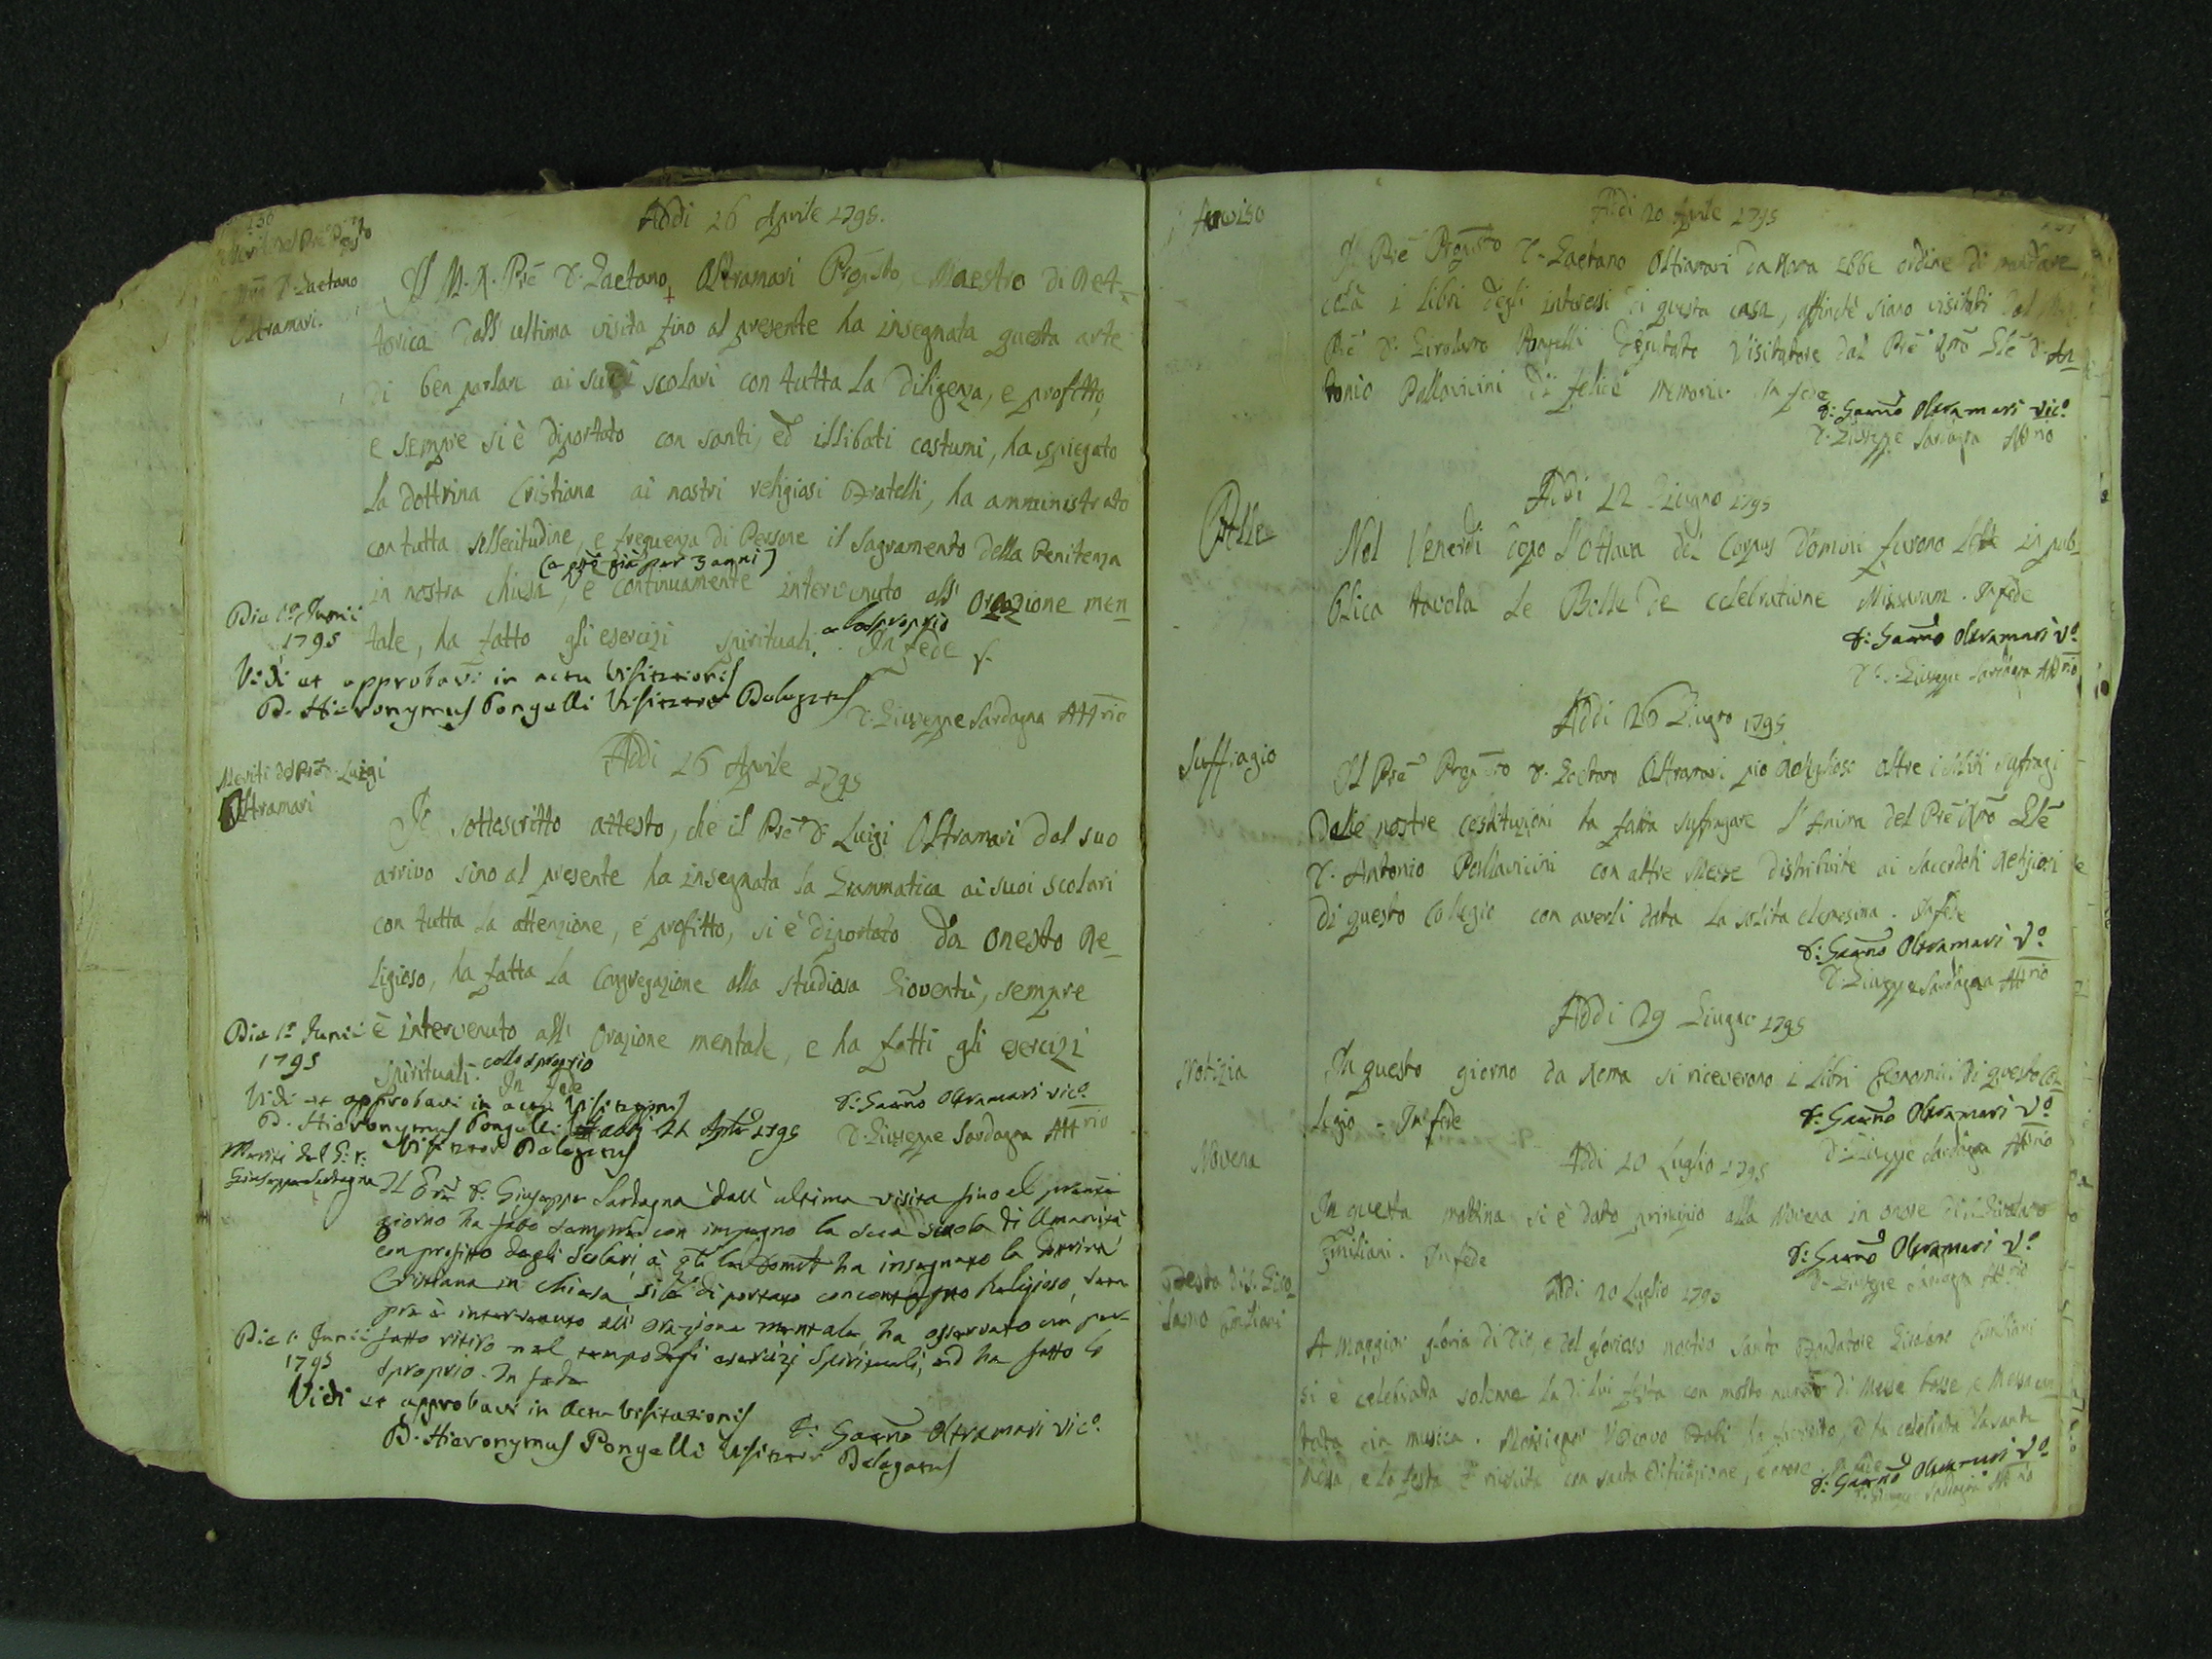 130
Meriti del Pre Prepto
D. Gaetano
Oltramari.
Addi 26 Aprile 1795.
Il M. R. Pre D. Gaetano Oltramari Prepsto, Maestro di Ret-
torica dall ultima visita fino al presente ha insegnata questa arte
di ben parlare ai suoi scolari con tutta la diligenza, e profitto,
e sempre si è diportato con santi, ed illibati costumi, ha spiegato
la dottrina Cristiana ai nostri religiosi Fratelli, ha amministrato
con tutta sollecitudine, e frequenza di Persone il Sagramento della Penitenza
(e ciò già per 3 anni)
in nostra chiesa, e continuamente intervenuto all' Orazione men-
tale, ha fatto gli esercizi spirituali. colo sproprio In fede
Die 1a Junii
1795
Vidi et approbavi in actu Visitationis
D. Hieronymus Pongelli Visitator Delegatus
D. Giuseppe Sardagna Attrio
Addi 26 Aprile 1795
Meriti del Pre D. Luigi
Oltramari
Io sottoscritto attesto, che il Pre D. Luigi Oltramari dal suo
arrivo sino al presente ha insegnata la Grammatica ai suoi scolari
con tutta la attenzione, e profitto, si è diportato da onesto Re-
ligioso, ha fatta la Congregazione alla studiosa Gioventù, sempre
è intervenuto all' Orazione mentale, e ha fatti gli esercizi
spirituali. collo sproprio In fede
Die 1a Junii
1795
Vidi et approbavi in actu Visitationis
D. Hieronymus Pongelli
Visitator Delegatus
D: Gaetno Oltramari Vico.
D. Giuseppe Sardagna Attrio
addi 21 Aprile 1795
Meriti del P. D.
Giuseppe Sardagna
Il Pre D. Giuseppe Sardagna dall' ultima visita fino al presente
giorno ha fatto sempre con impegno la sua scuola di Umanità
con profitto degli Scolari à ha insegnato la Dottrina
Cristiana in Chiesa, si è diportato con contegno Religioso, sem
pre è intervenuto all' orazione mentale, ha osservato un per-
fetto ritiro nel tempo degli esercizj Spirituali, ed ha fatto lo
sproprio. In fede
Die 1a Junii
1795
Vidi et approbavi in Actu Visitationis
D: Gaetno Oltramari Vico.
D. Hieronymus Pongelli Visitator Delegatus
Avviso
Addi 20 Aprile 1795
Il Pre Prepsto D. Gaetano Oltramari da Roma ebbe ordine di mandare
colà i libri degli interessi di questa casa, affinchè siano visitati dal
Pre D. Girolamo Pongelli Deputato Visitatore dal Pre Rmo Gle D. An-
tonio Pallavicini di felice memoria. In fede
D: Gaetno Oltramari Vico.
D. Giuseppe Sardagna Attrio
Addi 12 Giugno 1795
Bolle
Nel Venerdì dopo l'Ottava del Corpus Domini furono lette in pub-
blica tavola le Bolle de celebratione Missarum. In fede
D: Gaetno Oltramari Vo.
D. Giuseppe Sardagna Attrio
Addi 26 Giugno 1795
Suffragio
Il Pre Prepsto D. Gaetano Oltramari pio Religioso oltre i soliti suffragi
dalle nostre costituzioni ha fatta suffragare l'Anima del Pre Rmo Gle
D. Antonio Pallavicini con altre Messe distribuite ai Sacerdoti Religiosi
di questo Collegio con averli data la solita elemosina. In fede
D: Gaetno Oltramari Vo.
D. Giuseppe Sardagna Attrio
Addi 29 Giugno 1795
Notizia
In questo giorno da Roma si riceverono i libri Economici di questo Col-
legio. In fede
D: Gaetno Oltramari Vo.
D. Giuseppe Sardagna Attrio
Addi 10 Luglio 1795
Novena
In questa mattina si è dato principio alla Novena in onore di S. Girolamo
Emiliani. In fede
D: Gaetno Oltramari Vo.
D. Giuseppe Sardagna Attrio
Addi 20 Luglio 1795
Festa di S. Giro-
lamo Emiliani
A maggior gloria di Dio, e del glorioso nostro Santo Fondatore Girolamo Emiliani
si è celebrata solenne la di lui festa con molto numero di Messe basse, e Messa can
tata in musica. Monsignor Vescovo
Messa, e la festa è riuscita con santa edificazione, e onore. In fede
D: Gaetno Oltramari Vo.
D. Giuseppe Sardagna Attrio